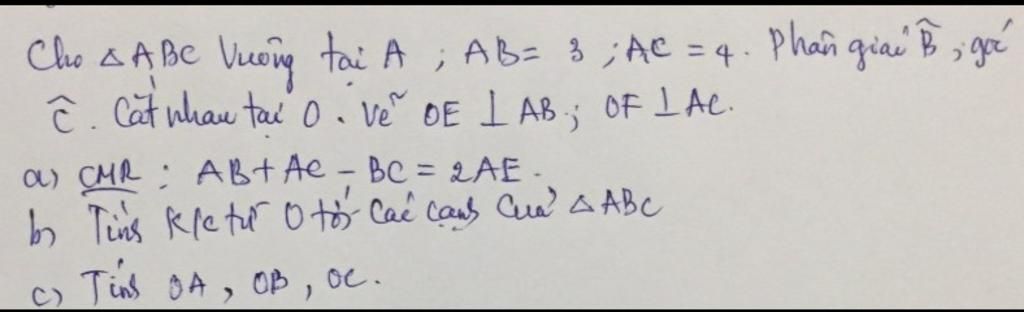 Cho △ABC Vuông tại A ; AB = 3 ; AC = 4. Phân giác B̂ ; góc
Ĉ. Cắt nhau tại O. Vẽ OE ⊥ AB ; OF ⊥ AC.
a) CMR : AB + AC – BC = 2AE.
b) Tính K/c từ O tới các cạnh của △ABC
c) Tính OA, OB, OC.